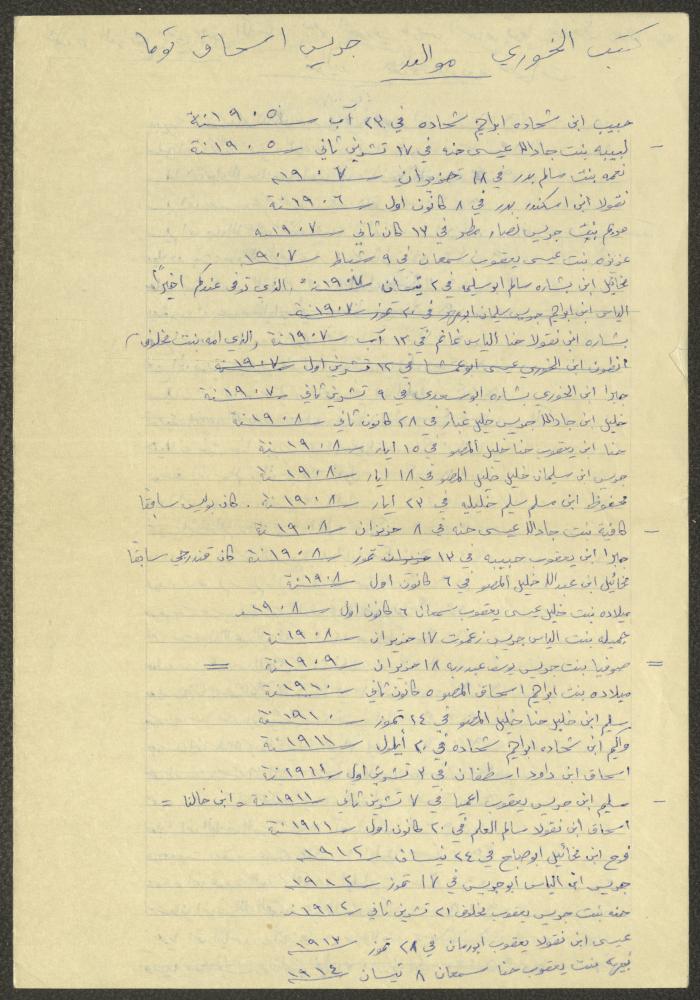 كتب الخوري مواليد جريس اسحاق توما
حبيب ابن شحاده ابراهيم شحاده في ٢٣ آب سنة ١٩٠٥
لبيبه بنت جادالله عيسى حنه في ١٧ تشرين ثاني سنة ١٩٠٥
نعمه بنت سالم بدر في ١٨ حزيران سنة ١٩٠٦
نقولا ابن اسكندر بدر في ٨ كانون اول سنة ١٩٠٦
مريم بنت جريس نصار مطر في ١٣ كان ثاني سنة ١٩٠٧
عزيزه بنت عيسى يعقوب سمعان في ٩ شباط سنة ١٩٠٧
مخائيل ابن بشاره سالم ابو سليم في ٢ نيسان سنة ١٩٠٧ الذي توفى عندكم اخيراً
الياس ابن ابراهيم جريس سليمان في ٢٠ تموز سنة ١٩٠٧
بشاره ابن نقولا حنا الياس غانم في ١٢ آب سنة ١٩٠٧ والذي امه بنت مخلوف
انطون ابن الخوري عيسى ابو عمشا في ١٢ تشرين اول سنة ١٩٠٧
جبرا ابن الخوري بشاره ابو سعدى في ٩ تشرين ثاني سنة ١٩٠٧
خليل ابن جادالله جريس خليل غبار في ٢٨ كانون ثاني سنة ١٩٠٨
حنا ابن يعقوب حنا خليل المصو في ١٥ أيار سنة ١٩٠٨
جريس ابن سليمان خليل خليل المصو في ١٨ ايار سنة ١٩٠٨
محفوظ ابن مسلم سليم خليليه في ٢٣ أيار سنة ١٩٠٨ . كان بوليس سابقا
كافية بنت جادالله عيسى حنه في ٨ حزيران سنة ١٩٠٨
جبرا ابن يعقوب حبيبه في ١٣ حزيران تموز سنة ١٩٠٨ كان قندرجي سابقا
مخائيل ابن عبدالله خليل المصو في ٦ كانون اول سنة ١٩٠٨
ميلاده بنت خليل عيسى يعقوب سمعان ٦ كانون اول سنة ١٩٠٨
جميله بنت الياس جريس زعموت ١٧ حزيران سنة ١٩٠٨
صوفيا بنت جريس يوسف عبدربه ١٨ حزيران سنة ١٩٠٩
ميلاده بنت ابراهيم اسحاق المصو ٥ كانون ثاني سنة ١٩١٠
سليم ابن خليل حنا خليل المصو في ٢٤ تموز سنة ١٩١٠
ابن شحاده ابراهيم شحاده في ٢٠ أيلول سنة ١٩١١
اسحاق ابن داود اسطفان في ٣ تشرين اول سنة ١٩١١
سليم ابن جريس يعقوب اعما في ٧ تشرين ثاني سنة ١٩١١ = ابن خالنا =
اسحاق ابن نقولا سالم العلم في ٢٠ كانون اول سنة ١٩١١
فرح ابن مخائيل ابو صباح في ٢٤ نيسان سنة ١٩١٢
جريس ابن الياس ابو جريس في ١٧ تموز سنة ١٩١٢
حنه بنت جريس يعقوب مخلوف ٢١ تشرين ثاني سنة ١٩١٢
عيسى ابن نقولا يعقوب ابو رمان في ٢٨ تموز سنة ١٩١٣
نبيهه بنت يعقوب حنا سمعان ٨ نيسان سنة ١٩١٤